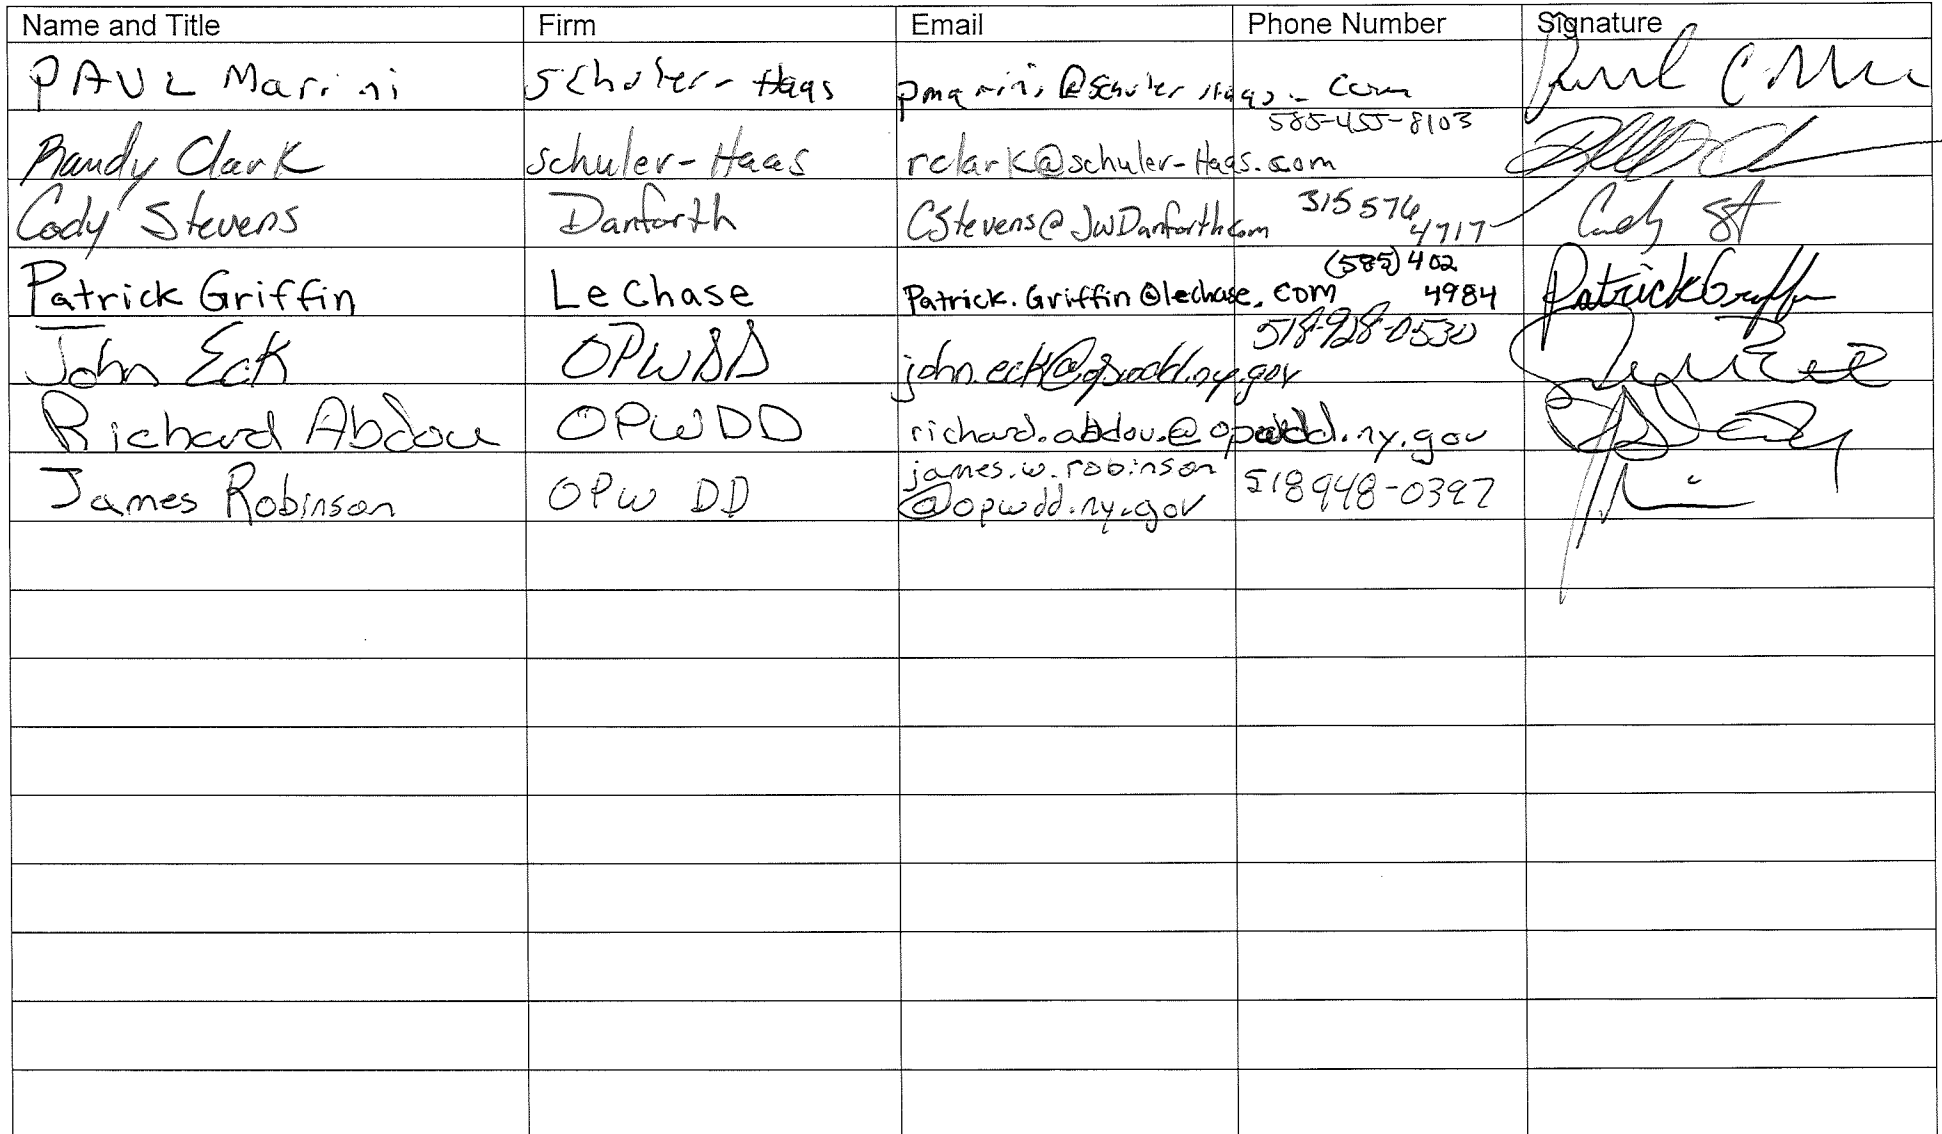 Name and Title Firm Email Phone Number Signature
PAUL Marini Schuler-Haas pmarini@schuler-haas.com
Randy Clark Schuler-Haas rclark@schuler-Haas.com 585-455-8103
Cody Stevens Danforth CStevens@JWDanforth.com 315 576 4717 Cody St
Patrick Griffin LeChase Patrick.Griffin@lechase.com (585) 402 4984 Patrick Griffin
John Eck OPWDD john.eck@opwdd.ny.gov 518-928-0530
Richard Abdou OPWDD richard.abdou.@opwdd.ny.gov
James Robinson OPWDD james.w.robinson 518 948-0397
@opwdd.ny.gov